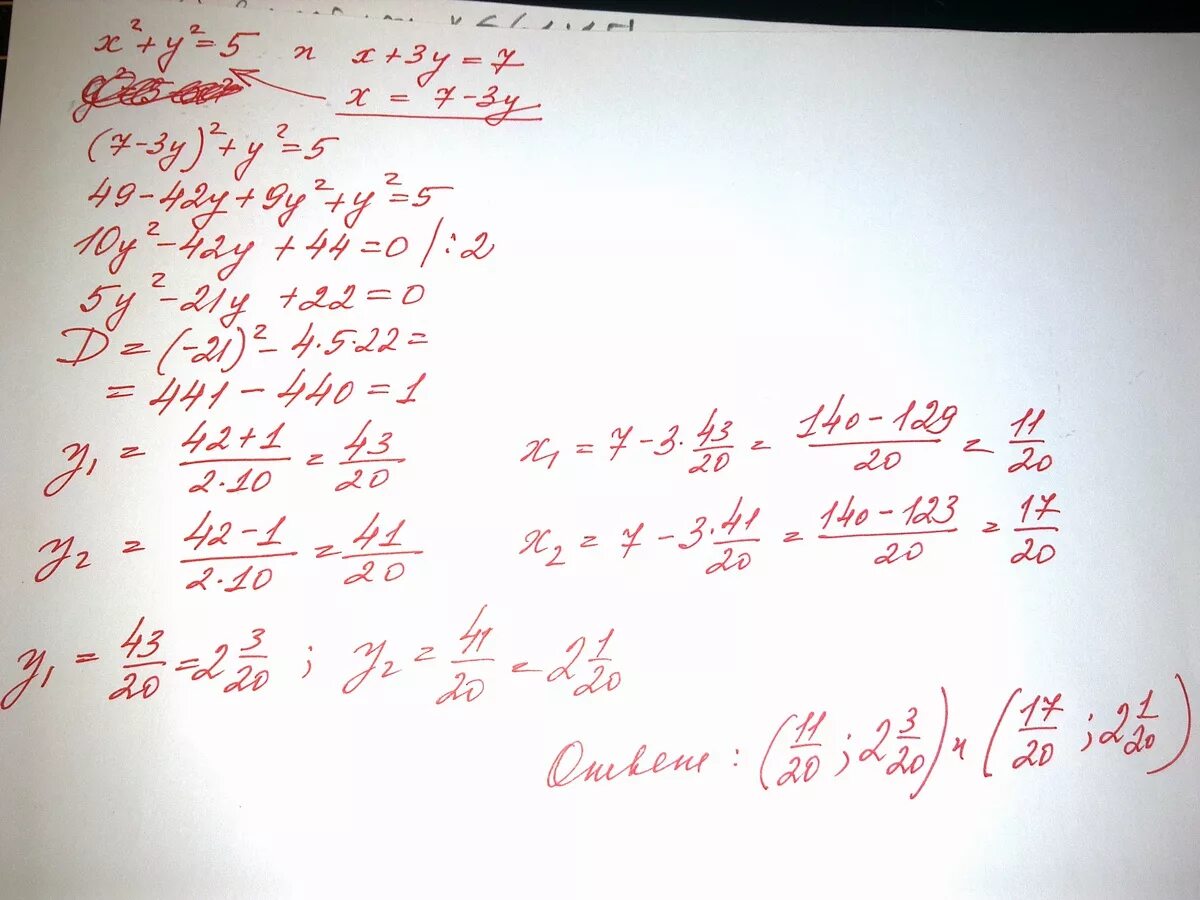 x²+y²=5 и x+3y=7
x = 7-3y
(7-3y)²+y²=5
49-42y+9y²+y²=5
10y²-42y+44=0 |:2
5y²-21y+22=0
D=(-21)²-4·5·22=
=441-440=1
y₁ = (42+1)/(2·10) = 43/20 x₁ = 7-3·43/20 = (140-129)/20 = 11/20
y₂ = (42-1)/(2·10) = 41/20 x₂ = 7-3·41/20 = (140-123)/20 = 17/20
y₁ = 43/20 = 2 3/20 ; y₂ = 41/20 = 2 1/20
Ответ: (11/20 ; 2 3/20) и (17/20 ; 2 1/20)